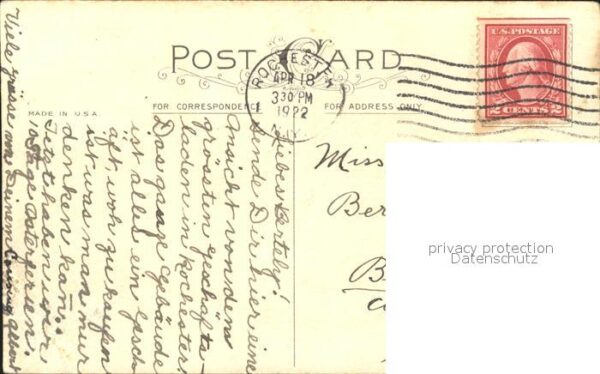 POST CARD
ROCHESTER
APR 18
3 30 PM
1922
N.Y.
U.S. POSTAGE
2 CENTS 2
MADE IN U.S.A.
FOR CORRESPONDENCE
FOR ADDRESS ONLY
Liebs Bertely!
sende Dir hier eine
Ansicht von dem
grössten Geschäfts-
laden in Rochester.
Das ganze Gebäude
ist alles ein gesch
äft, woh zu kaufen
ist was man nur
denken kan.
Jetzt haben wir
Tage Osterferien.
Viele grüsse von Deinem
Albert
Miss
Ber
B
privacy protection
Datenschutz